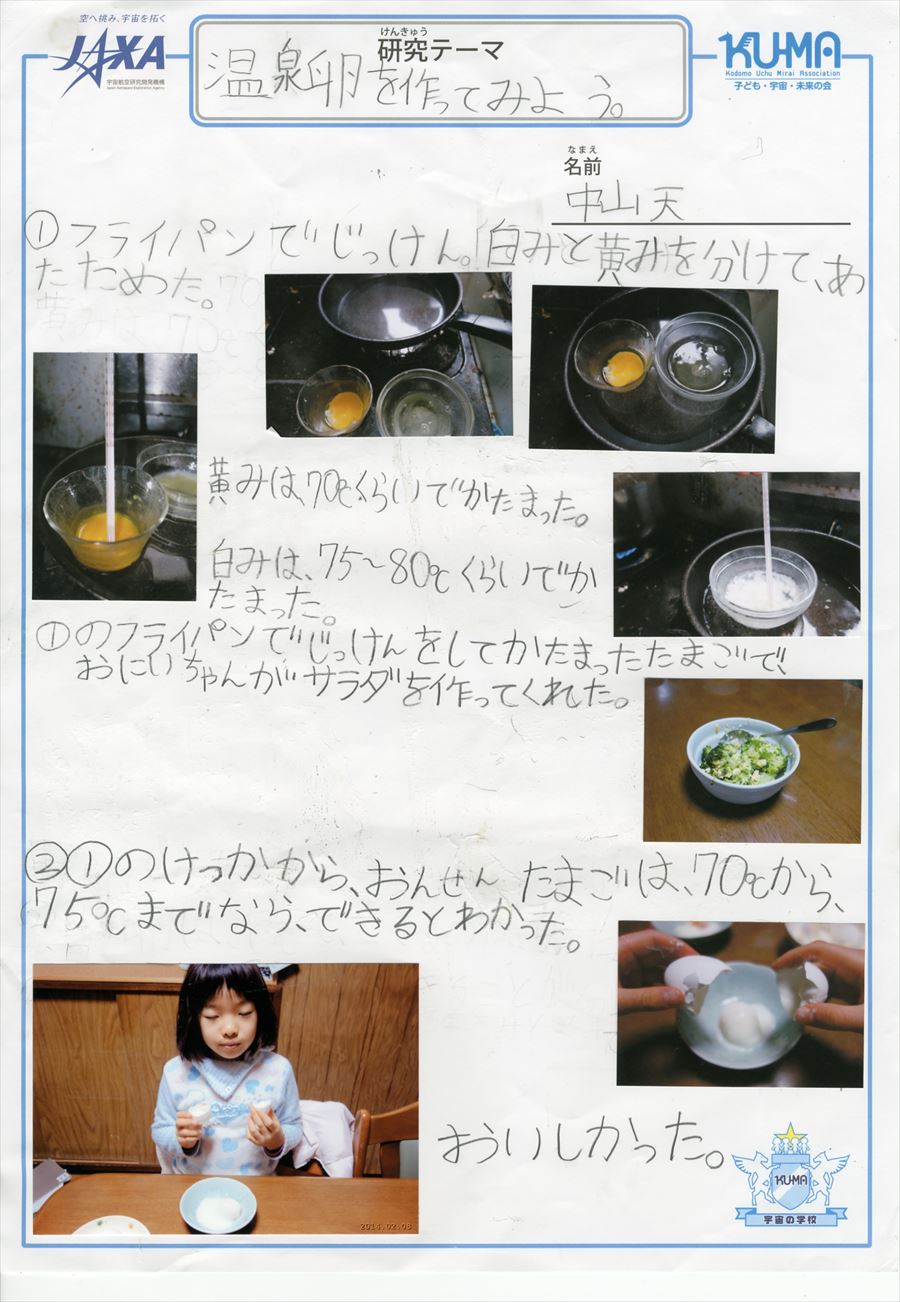 空へ挑み、宇宙を拓く
JAXA
宇宙航空研究開発機構
Japan Aerospace Exploration Agency
けんきゅう
研究テーマ
温泉卵を作ってみよう。
KU-MA
Kodomo Uchu Mirai Association
子ども・宇宙・未来の会
なまえ
名前
中山天
①フライパンでじっけん。白みと黄みを分けて、あ
たためた。
黄みは、70℃くらいでかたまった。
白みは、75〜80℃くらいでか
たまった。
①のフライパンでじっけんをしてかたまったたまごで、
おにいちゃんがサラダを作ってくれた。
②①のけっかから、おんせんたまごは、70℃から、
75℃までなら、できるとわかった。
2014.02.08
おいしかった。
KUMA
宇宙の学校